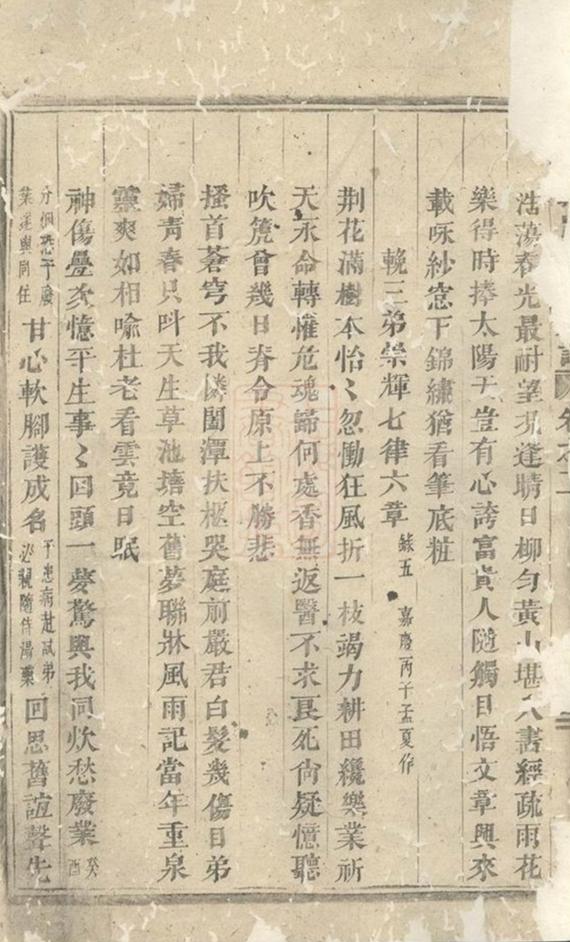 浩蕩春光最耐望況逢晴日柳勻黃山堪入書經疏雨花
樂得時捧太陽天豈有心誇富貴人隨觸目悟文章興來
載咏紗窓下錦繡猶看筆底粧
輓三弟崇輝七律六章 錄五 嘉慶丙子孟夏作
荆花滿樹本怡〻忽慟狂風折一枝竭力耕田纔樂業祈
天永命轉懼危魂歸何處香無返醫不求良死尙疑憶聽
吹箎曾幾日脊令原上不勝悲
搔首蒼穹不我憐閩潭扶柩哭庭前嚴君白髮幾傷目弟
婦靑春只呌天生草池塘空舊夢聯牀風雨記當年重泉
靈爽如相喻杜老看雲竟日眠
神傷疊次憶平生事〻回頭一夢驚與我同炊愁廢業 癸酉
分佃恐予廢
業遂與同住 甘心軟腳護成名 予患病赴試弟
必親隨侍湯藥 回思舊誼聲先
卷之二